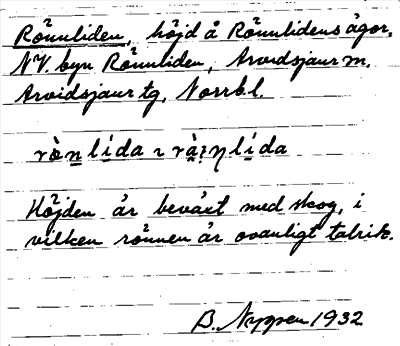 Rönnliden, höjd å Rönnlidens ägor,
NV. byn Rönnliden, Arvidsjaur sn.
Arvidsjaur tg, Norrb.l.
Höjden är beväxt med skog, i
vilken rönnen är ovanligt talrik.
B. Nyman 1932